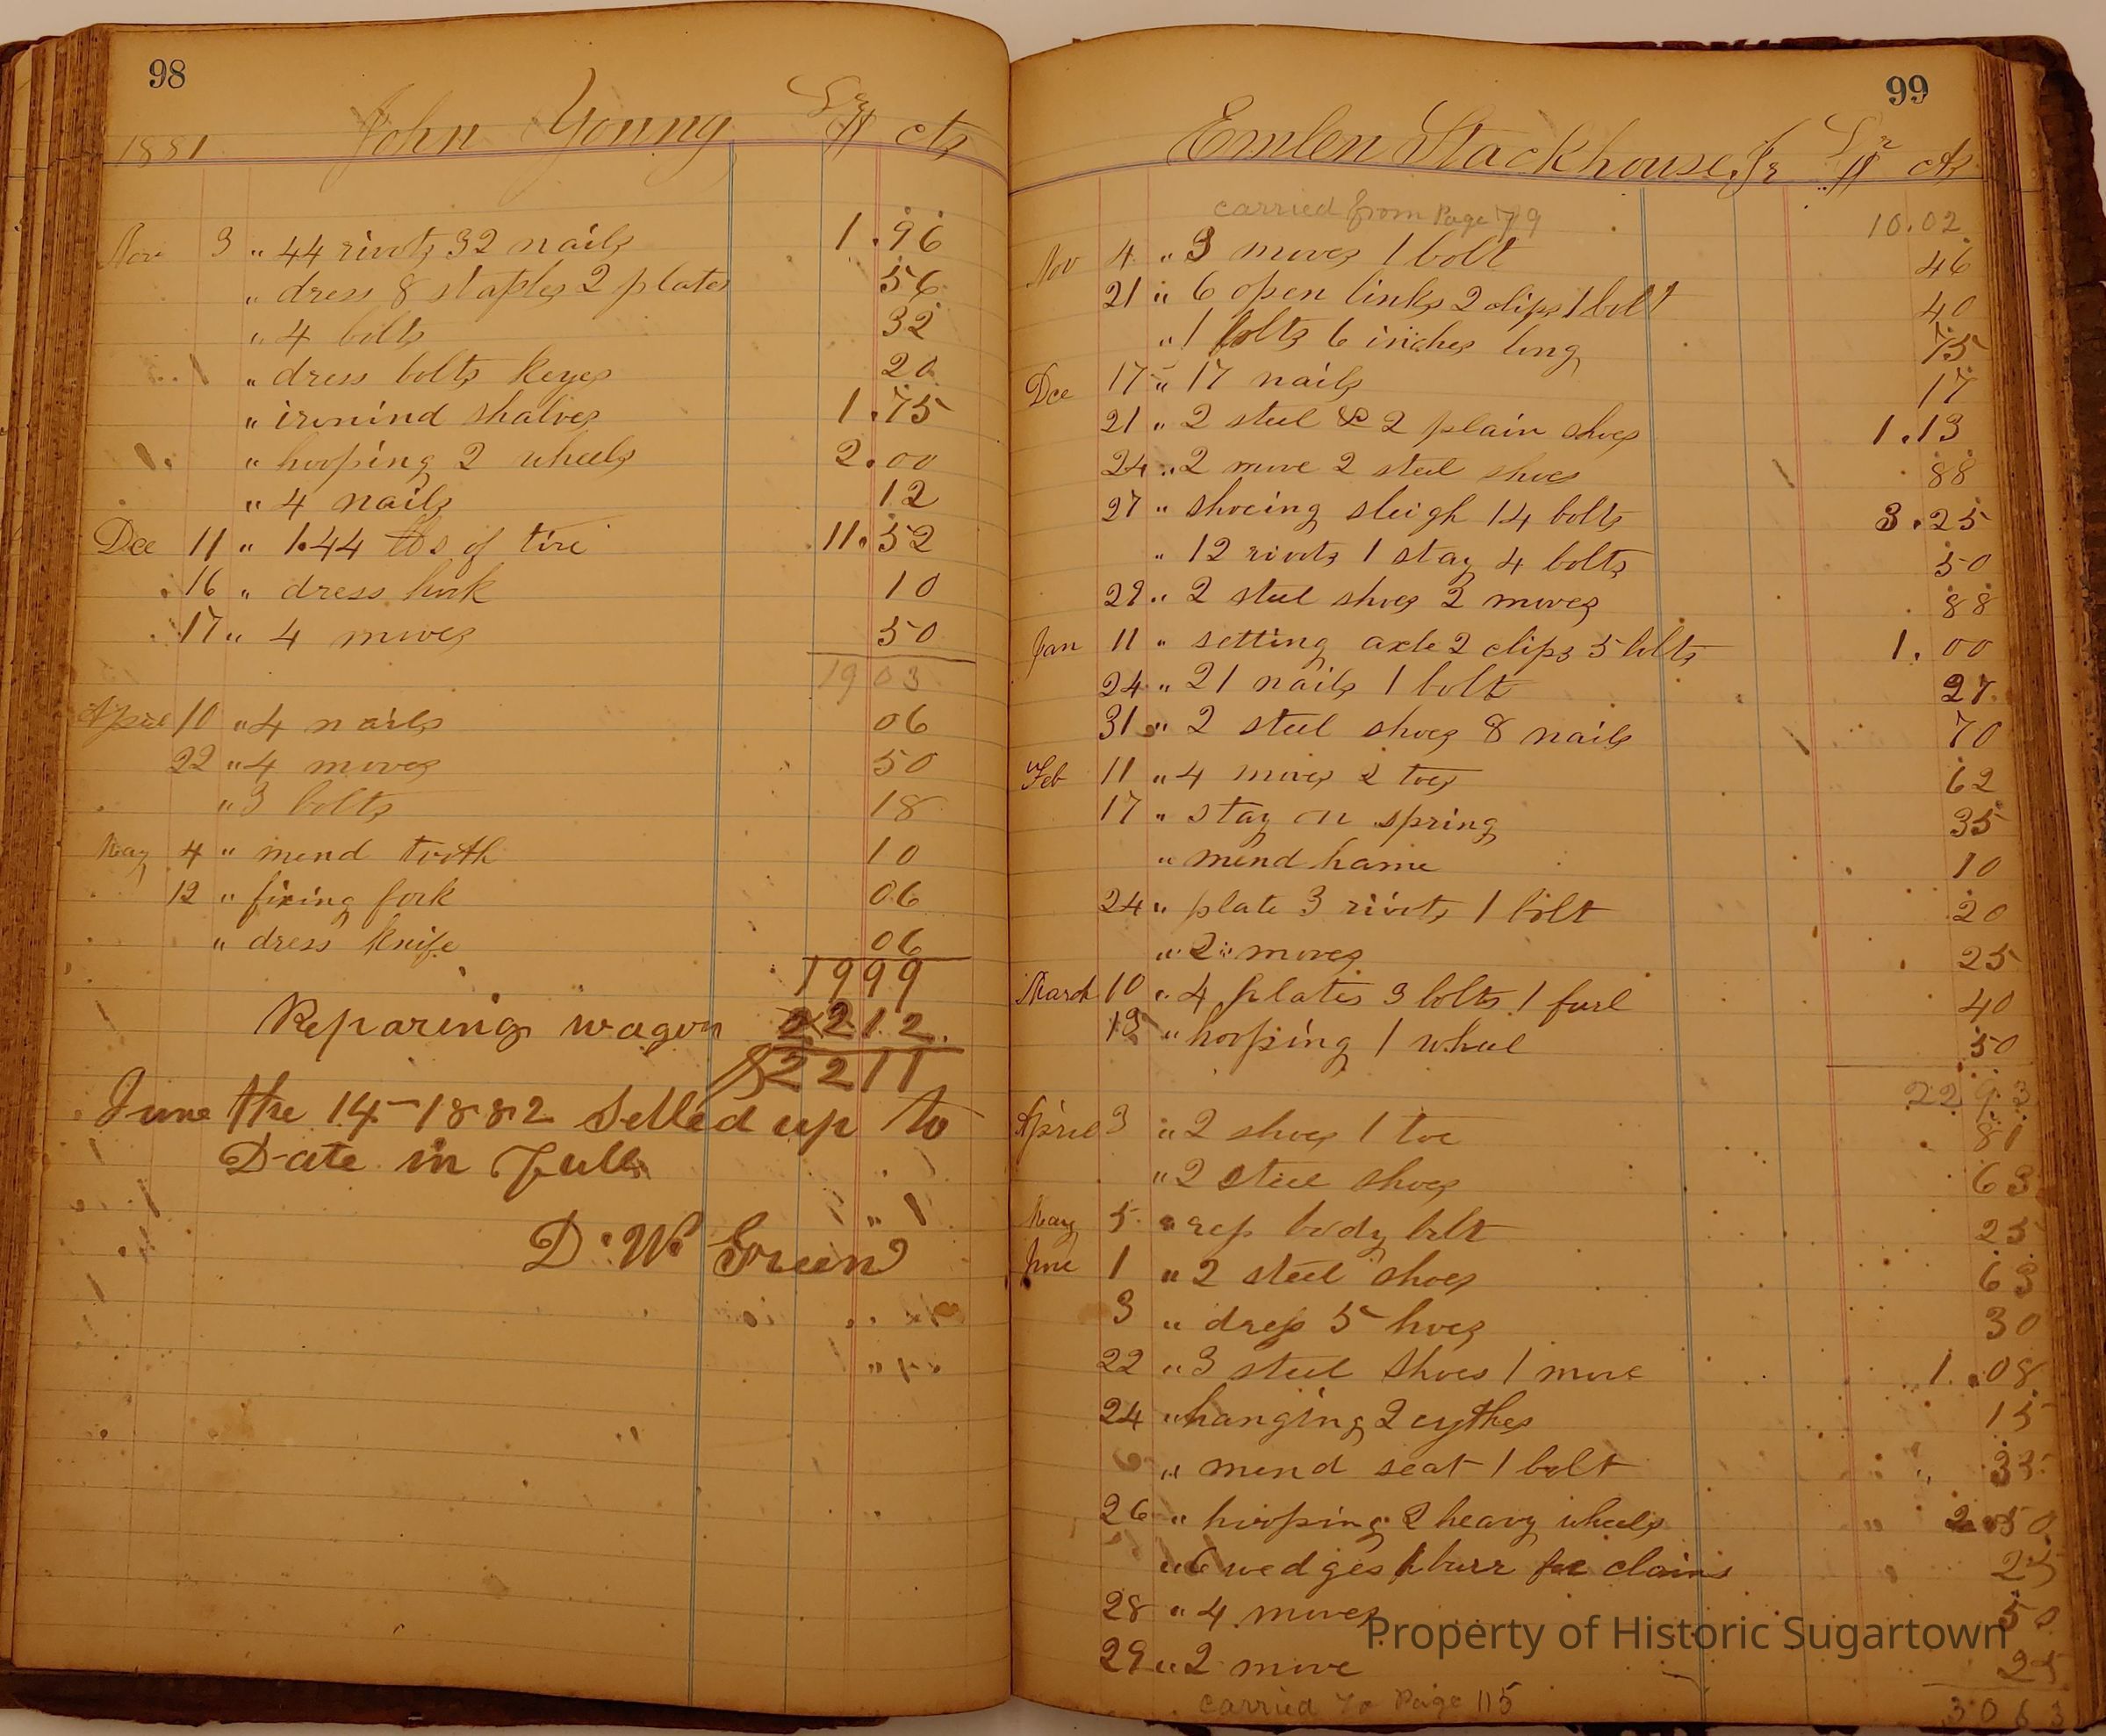 98
1881 John Young Dr $ cts
Nov 3 " 44 rivets 32 nails 1.96
" dress 8 staples 2 plates 56
" 4 bolts 32
" dress bolts keyes 20
" ironind shalves 1.75
" hooping 2 wheels 2.00
" 4 nails 12
Dec 11 " 1.44 lbs of tire 11.52
16 " dress hook 10
17 " 4 moves 50
19 03
April 10 " 4 nails 06
22 " 4 moves 50
" 3 bolts 18
May 4 " mend tooth 10
12 " fixing fork 06
" dress knife 06
1999
Reparing wagon 212
$2211
June the 14-1882 Setled up to
Date in Full
D. W. Green
99
Emlen Stackhouse Jr Dr $ cts
carried from Page 79 10.02
Nov 4 " 3 moves 1 bolt 46
21 " 6 open links 2 clips 1 bolt 40
" 1 bolts 6 inches long 15
Dec 17 " 17 nails 17
21 " 2 steel & 2 plain shoes 1.13
24 " 2 move 2 steel shoes 88
27 " shoeing sleigh 14 bolts 3.25
" 12 rivets 1 stay 4 bolts 50
29 " 2 steel shoes 2 moves 88
Jan 11 " setting axle 2 clips 5 bolts 1.00
24 " 21 nails 1 bolt 27
31 " 2 steel shoes 8 nails 70
Feb 11 " 4 moves 2 toes 62
17 " stay on spring 35
" mend hame 10
24 " plate 3 rivets 1 bolt 20
" 2 moves 25
March 10 " 4 plates 3 bolts 1 furl 40
13 " hooping 1 wheel 50
22 93
April 3 " 2 shoes 1 toe 81
" 2 steel shoes 63
May 5 " rep body bolt 25
June 1 " 2 steel shoes 63
3 " dress 5 hoes 30
22 " 3 steel shoes 1 move 1.08
24 " hanging 2 cythes 15
" mend seat 1 bolt 35
26 " hooping 2 heavy wheels 2.50
" 6 wedges 1 burr for clains 25
28 " 4 moves 50
29 " 2 move 25
carried to Page 115 30 63
Property of Historic Sugartown